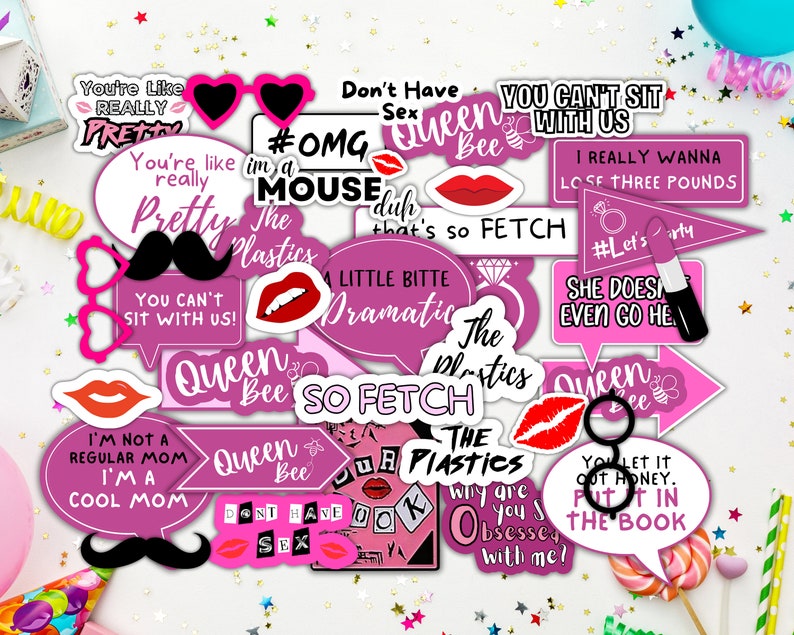 You're Like
REALLY
PRETTY
Don't Have
Sex
Queen
Bee
YOU CAN'T SIT
WITH US
#OMG
im a
MOUSE
You're like
really
Pretty
The
Plastics
duh
that's so FETCH
I REALLY WANNA
LOSE THREE POUNDS
#Let's Party
YOU CAN'T
SIT WITH US!
A LITTLE BITTE
Dramatic
SHE DOESN'T
EVEN GO HERE
The
Plastics
Queen
Bee
Queen
Bee
SO FETCH
I'M NOT A
REGULAR MOM
I'M A
COOL MOM
Queen
Bee
THE
PLASTICS
YOU LET IT
OUT HONEY.
PUT IT IN
THE BOOK
BUR
BOOK
Why are
you so
Obsessed
with me?
DONT HAVE
SEX